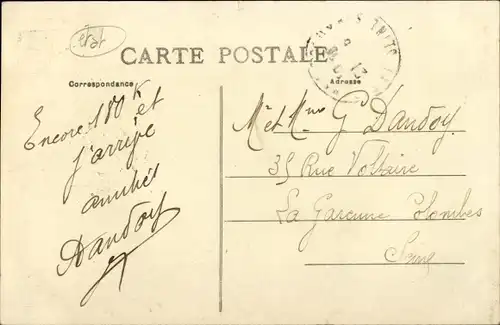 etat
CARTE POSTALE
Correspondance
Adresse
Encore 180 K et
j'arrive
amitiés
Dandoy
Mr et Mme G Dandoy
35 Rue Voltaire
La Garenne Colombes
Seine